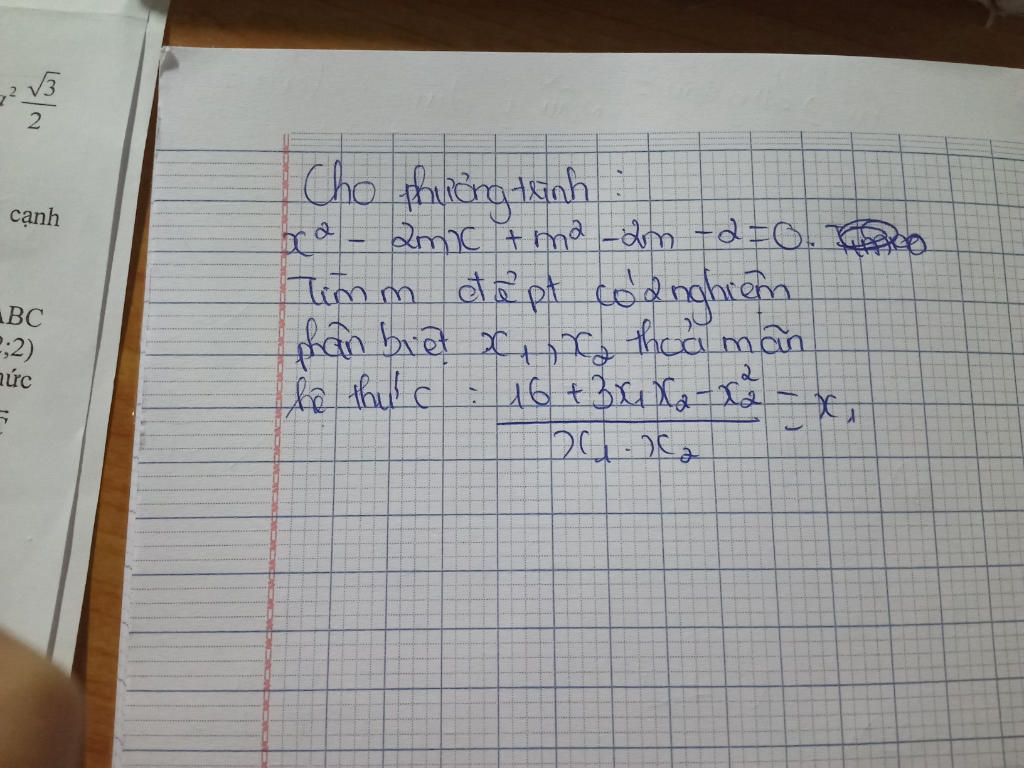 √3
2
2
cạnh
ABC
;2)
Cho phương trình :
x² - 2mx + m² - 2m - 2 = 0.
Tìm m để pt có 2 nghiệm
phân biệt x₁, x₂ thoả mãn
hệ thức : 16 + 3x₁x₂ - x₂² = x₁
x₁ . x₂